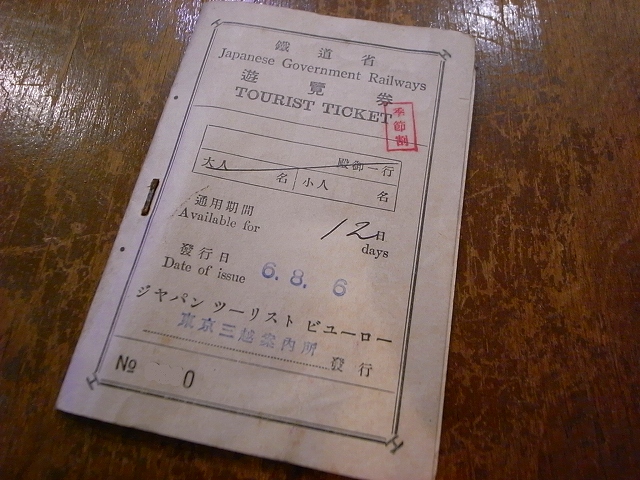 鐵道省
Japanese Government Railways
遊覽券
TOURIST TICKET
季節割
殿御一行
大人 名 小人 名
通用期間
Available for 12日
days
發行日
Date of issue 6.8.6
ジヤパン ツーリスト ビユーロー
東京三越案内所 發行
№ 0